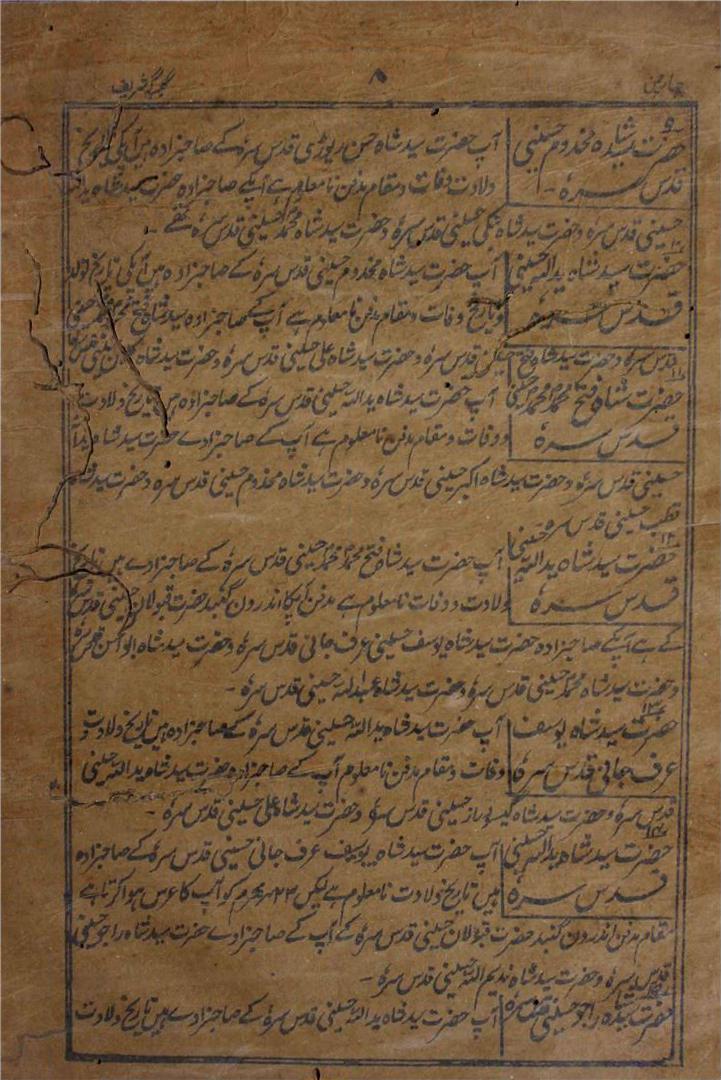 ۸
گلبرگہ شریف
۹
حضرت سید شاہ مخدوم حسینی
قدس سرہٗ -
آپ حضرت سید شاہ حسن قدس سرہٗ کے صاحبزادہ ہیں آپکی تاریخ
ولادت وفات و مقام مدفن نامعلوم ہے آپکے صاحبزادہ حضرت سید شاہ یداللہ
حسینی قدس سرہٗ و حضرت سید شاہ حسینی قدس سرہٗ و حضرت سید شاہ محمد حسینی قدس سرہٗ تھے -
۱۰
حضرت سید شاہ یداللہ حسینی
قدس سرہٗ
آپ حضرت سید شاہ مخدوم حسینی قدس سرہٗ کے صاحبزادہ ہیں آپکی تاریخ تولد
و تاریخ وفات و مقام مدفن نامعلوم ہے آپ کے صاحبزادہ سید شاہ فتح محمد محمد حسینی
قدس سرہٗ و حضرت سید شاہ حسینی قدس سرہٗ و حضرت سید شاہ علی حسینی قدس سرہٗ و حضرت سید شاہ
۱۱
حضرت شاہ فتح محمد محمد حسینی
قدس سرہٗ
آپ حضرت سید شاہ یداللہ حسینی قدس سرہٗ کے صاحبزادہ ہیں تاریخ ولادت
و وفات و مقام مدفن نامعلوم ہے آپ کے صاحبزادے حضرت سید شاہ یداللہ
حسینی قدس سرہٗ و حضرت سید شاہ اکبر حسینی قدس سرہٗ و حضرت سید شاہ مخدوم حسینی قدس سرہ و حضرت سید شاہ
قطب حسینی قدس سرہ
۱۲
حضرت سید شاہ یداللہ حسینی
قدس سرہٗ
آپ حضرت سید شاہ فتح محمد محمد حسینی قدس سرہٗ کے صاحبزادے ہیں تاریخ
ولادت و وفات نامعلوم ہے مدفن آپکا اندرون گنبد حضرت قبولان حسینی قدس سرہٗ
کے ہے آپکے صاحبزادہ حضرت سید شاہ یوسف حسینی عرف جانی قدس سرہٗ و حضرت سید شاہ ابوالحسن قدس سرہٗ
و حضرت سید شاہ محمد حسینی قدس سرہٗ و حضرت سید شاہ عبداللہ حسینی قدس سرہٗ -
۱۳
حضرت سید شاہ یوسف
عرف جانی قدس سرہٗ
آپ حضرت سید شاہ یداللہ حسینی قدس سرہٗ کے صاحبزادہ ہیں تاریخ ولادت و
وفات و مقام مدفن نامعلوم آپ کے صاحبزادہ حضرت سید شاہ یداللہ حسینی
قدس سرہٗ و حضرت سید شاہ گیسو دراز حسینی قدس سرہٗ و حضرت سید شاہ علی حسینی قدس سرہٗ -
۱۴
حضرت سید شاہ یداللہ حسینی
قدس سرہٗ
آپ حضرت سید شاہ یوسف عرف جانی حسینی قدس سرہٗ کے صاحبزادہ
ہیں تاریخ ولادت نامعلوم ہے لیکن ۲۳ محرم کو آپ کا عرس ہوا کرتا ہے
مقام مدفن اندرون گنبد حضرت قبولان حسینی قدس سرہٗ کے آپ کے صاحبزادے حضرت سید شاہ راجو حسینی
قدس سرہٗ و حضرت سید شاہ ندیم اللہ حسینی قدس سرہٗ -
۱۵
حضرت سید شاہ راجو حسینی قدس سرہ
آپ حضرت سید شاہ یداللہ حسینی قدس سرہٗ کے صاحبزادے ہیں تاریخ ولادت